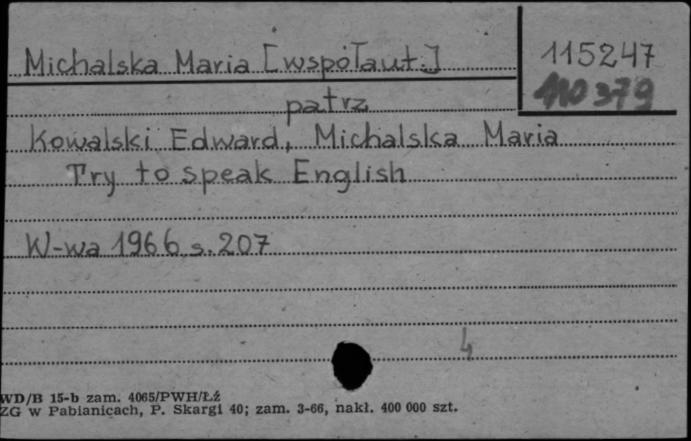 Michalska Maria [współaut.]
115247
110379
patrz
Kowalski Edward, Michalska Maria
Try to speak English
W-wa 1966 s. 207
4
WD/B 15-b zam. 4065/PWH/Łź
ZG w Pabianicach, P. Skargi 40; zam. 3-66, nakł. 400 000 szt.